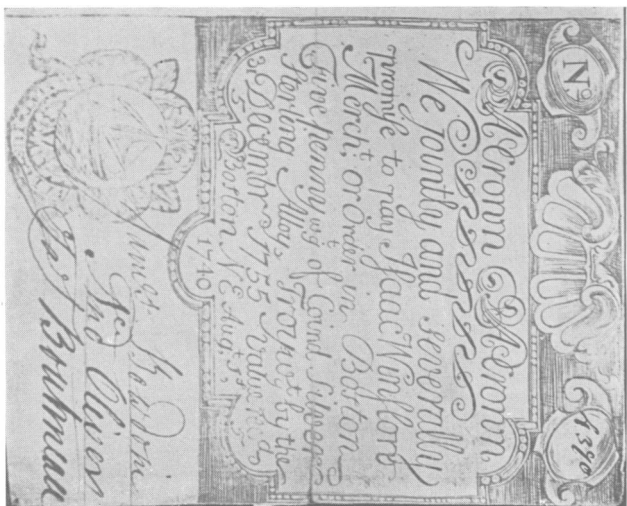 No 4390
A Crown A Crown
We Jointly and severally
promise to pay Isaac Winslow
Mercht. Or Order in Boston
Five penny wt. of Coind Silver
Sterling Alloy Troy wt by the
31st Decembr 1755 Value recd.
Boston N E Augt.
1740
James Bowdoin
Ja Boutineau